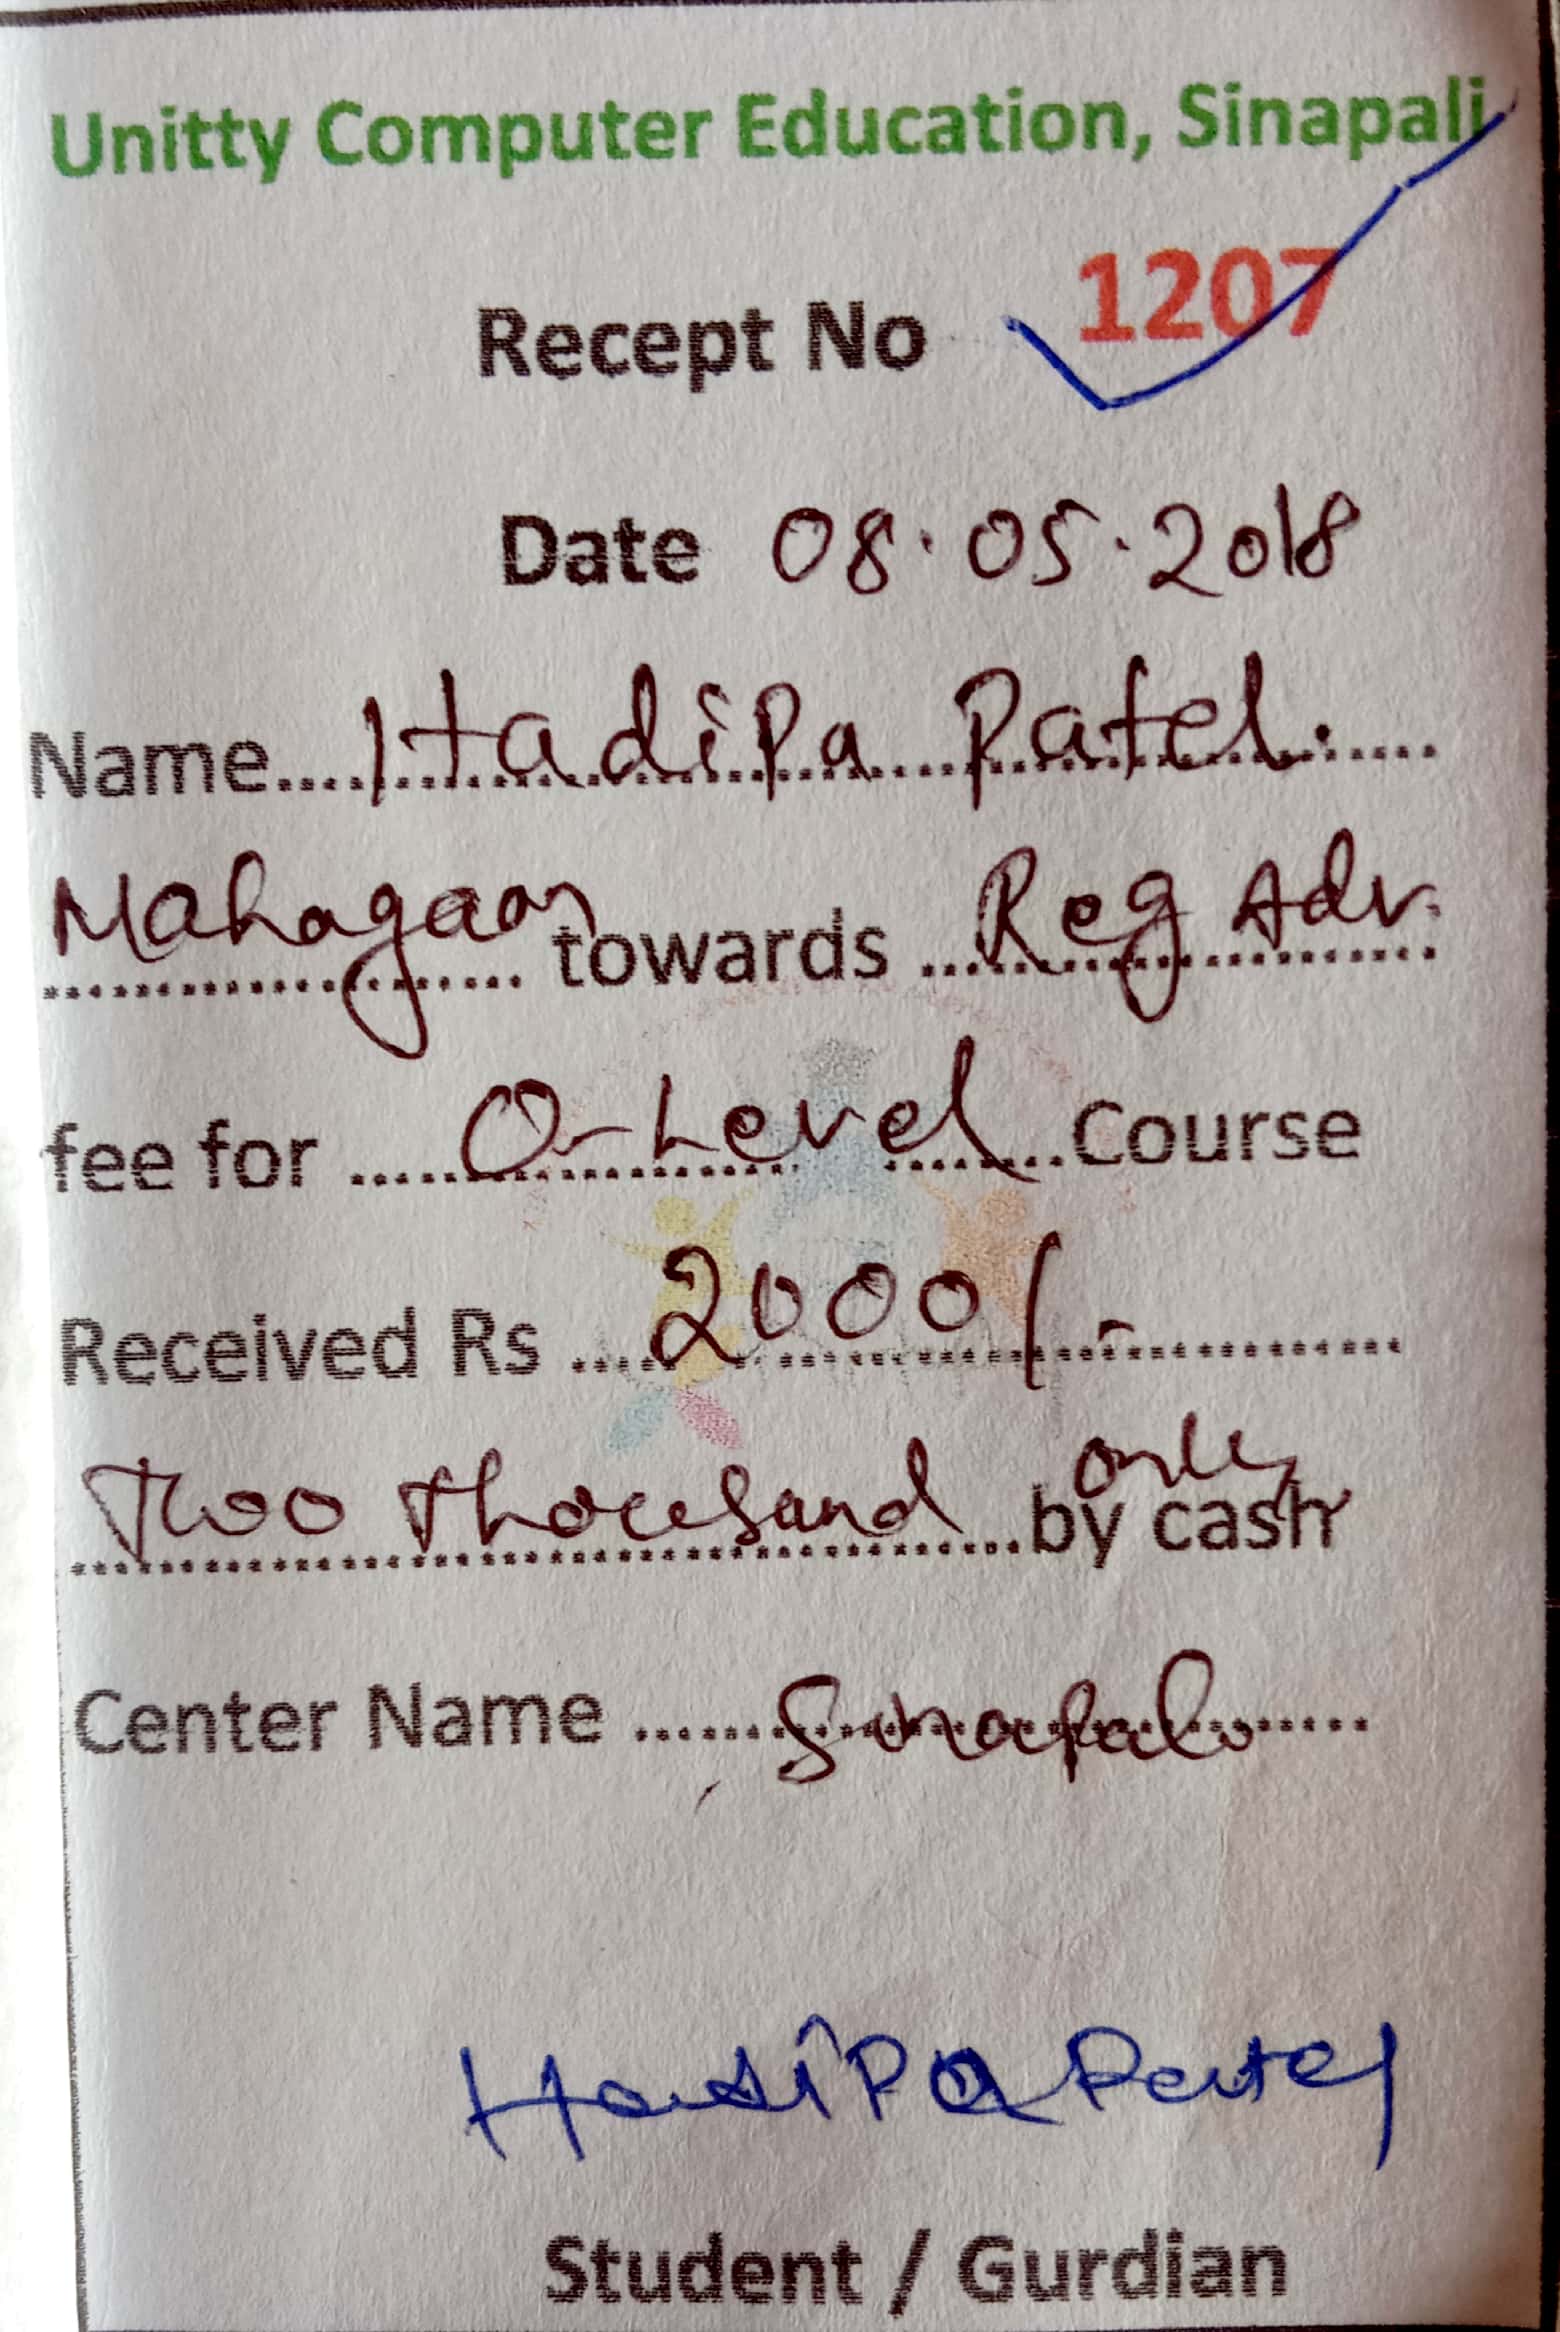 Unitty Computer Education, Sinapali
Recept No 1207
Date 08.05.2018
Name....Hadipa Patel.....
Mahagaon towards Reg Adv.
fee for ..... O-Level ....Course
Received Rs ....2000/-............
Two Thousand only ...by cash
Center Name ....... Sinapali .....
Hadipa Patel
Student / Gurdian